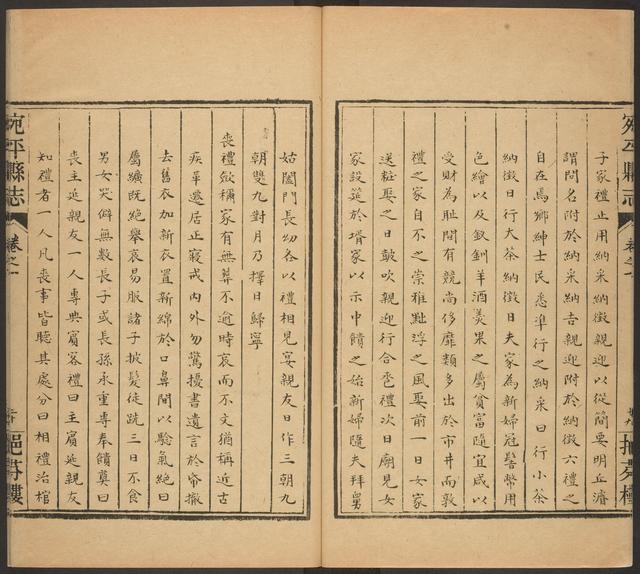 宛平縣志
卷之一
子家禮止用納采納徵親迎以從簡要明丘濬
謂問名附於納采納吉親迎附於納徵六禮之
自在焉鄉紳士民悉準行之納采曰行小茶
納徵曰行大茶納徵日夫家為新婦冠髻幣用
色繒以及釵釧羊酒羮果之屬貧富隨宜咸以
受財為耻間有競尚侈靡類多出於市井而敦
禮之家自不之崇雅黜浮之風娶前一日女家
送粧娶之日鼓吹親迎行合卺禮次日廟見女
家設筵於壻家以示中饋之始新婦隨夫拜舅
姑闔門長幼各以禮相見宴親友曰作三朝九
朝雙九對月乃擇日歸寧
喪禮斂稱家有無葬不逾時哀而不文猶稱近古
疾革遷居正寢戒內外勿驚擾書遺言於帋撤
去舊衣加新衣置新綿於口鼻間以驗氣絕曰
屬纊既絕舉哀易服諸子披髮徒跣三日不食
男女哭僻無數長子或長孫承重專奉饋奠曰
喪主延親友一人專典賓客禮曰主賓延親友
知禮者一人凡喪事皆聽其處分曰相禮治棺
宛平縣志
卷之一